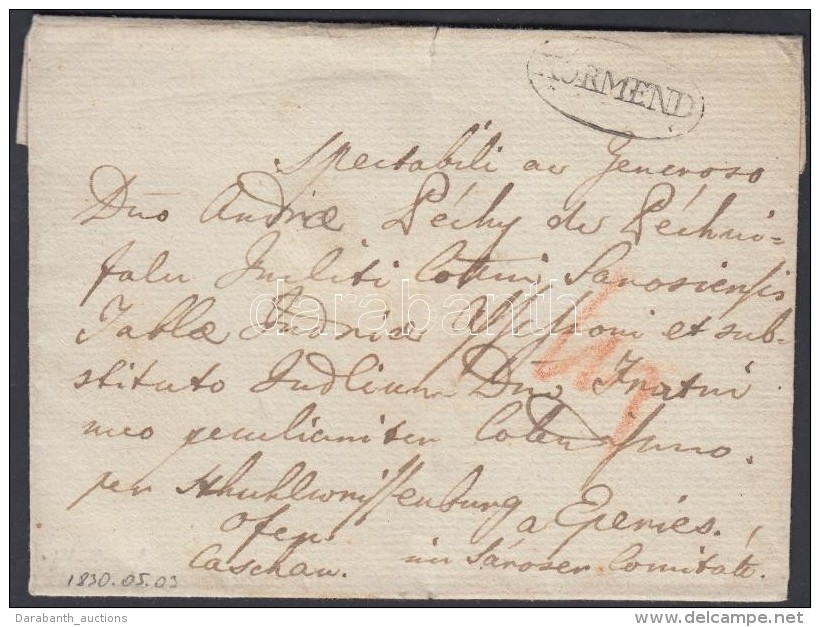 KÖRMEND
Spectabili ac Generoso
Dno Andreæ Péchy de Péchuj=
falu Incliti Cottus Sarosiensis
Tablæ Judriæ Assessori et sub=
stituto Judlium Dno Fratri
meo peculiariter Colendissimo.
per Stuhlweissenburg
Ofen a Eperies.
Caschau. im Sároser Comitate.
1830.05.03
darabanth
Darabanth_auctions
delcampe.net